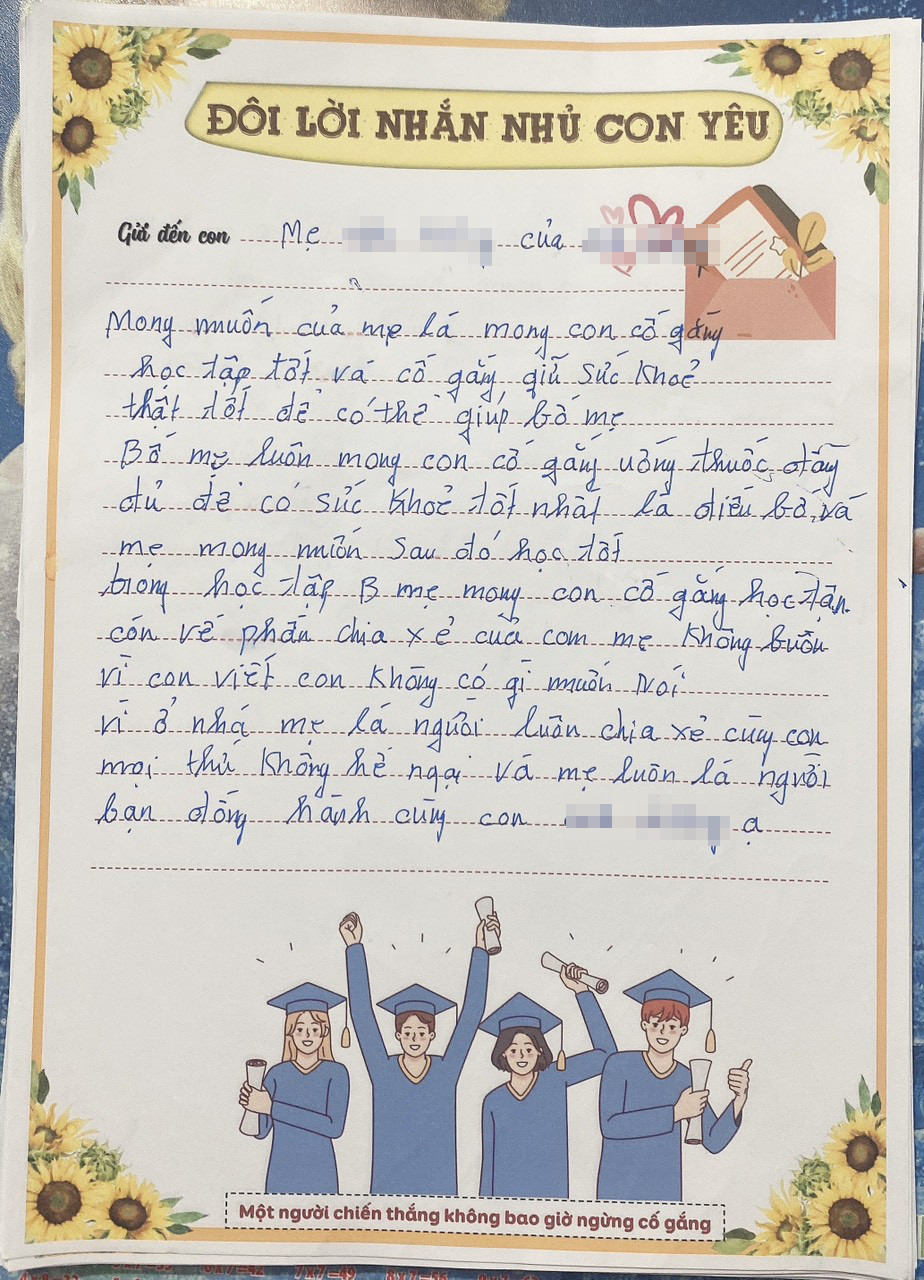 ĐÔI LỜI NHẮN NHỦ CON YÊU
Gửi đến con Mẹ của
Mong muốn của mẹ lá mong con cố gắng
học tập tốt vá cố gắng giữ sức khoẻ
thật tốt để có thể giúp bố mẹ
Bố mẹ luôn mong con cố gắng uống thuốc đầy
đủ để có sức khoẻ tốt nhất lá điều bố vá
mẹ mong muốn sau đó học tốt
trong học tập B mẹ mong con cố gắng học tập
cón về phần chia xẻ của com mẹ không buồn
vì con viết con không có gì muốn nói
vì ở nhá mẹ lá người luôn chia xẻ cùng con
mọi thứ không hề ngại vá mẹ luôn lá người
bạn đồng hành cùng con ạ
Một người chiến thắng không bao giờ ngừng cố gắng
7x7=49